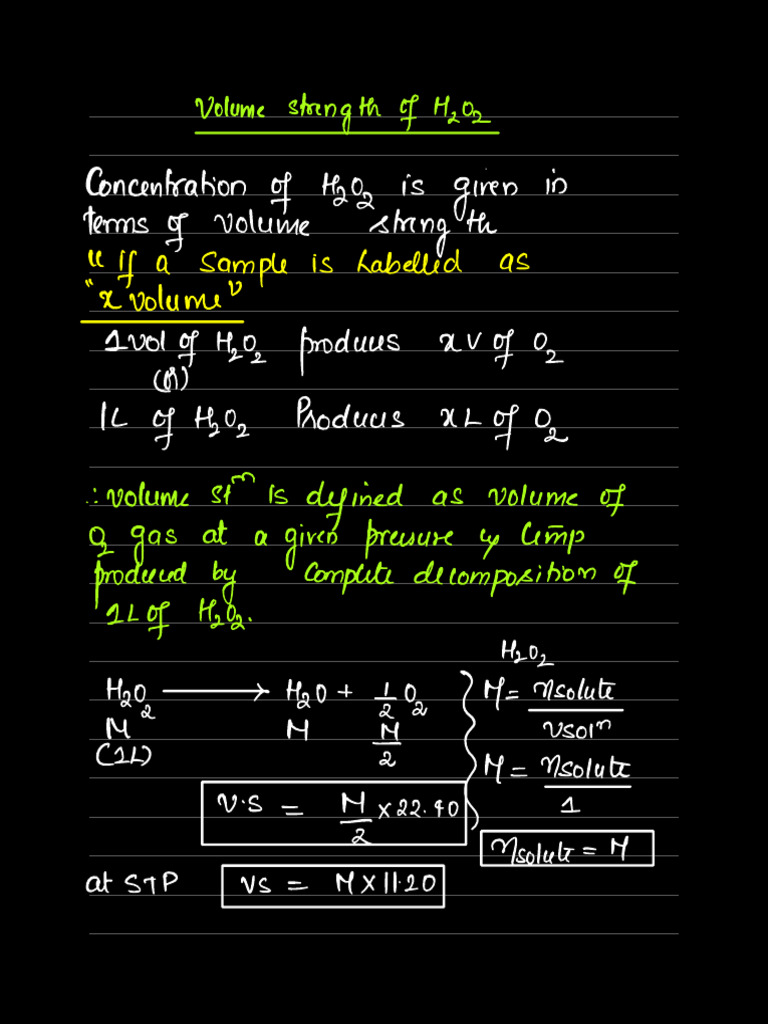 Volume strength of H₂O₂
Concentration of H₂O₂ is given in
terms of volume strength
"If a Sample is Labelled as
"x volume"
1 vol of H₂O₂ produces x V of O₂
(or)
1L of H₂O₂ Produces x L of O₂
∴ volume stᵐ is defined as volume of
O₂ gas at a given pressure & temp
produced by Complete decomposition of
1L of H₂O₂.
H₂O₂ ⟶ H₂O + 1/2 O₂
M M M/2
(1L)
V.S = M/2 × 22.40
at STP VS = M × 11.20
H₂O₂
M = nsolute/vsolⁿ
M = nsolute/1
nsolute = M